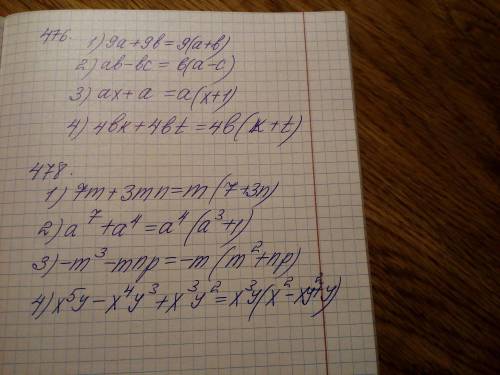 476.
1) 9a + 9в = 9(a+в)
2) aв - вc = в(a-c)
3) ax + a = a(x+1)
4) 4вк + 4вt = 4в(к+t)
478.
1) 7m + 3mn = m(7+3n)
2) a⁷ + a⁴ = a⁴(a³+1)
3) -m³ - mnp = -m(m²+np)
4) x⁵y - x⁴y³ + x³y² = x³y(x² - xy²+y)